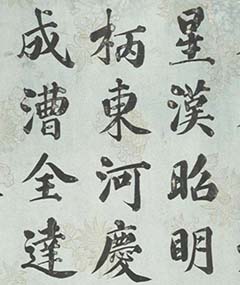 星漢昭明
柄東河慶
成漕全達